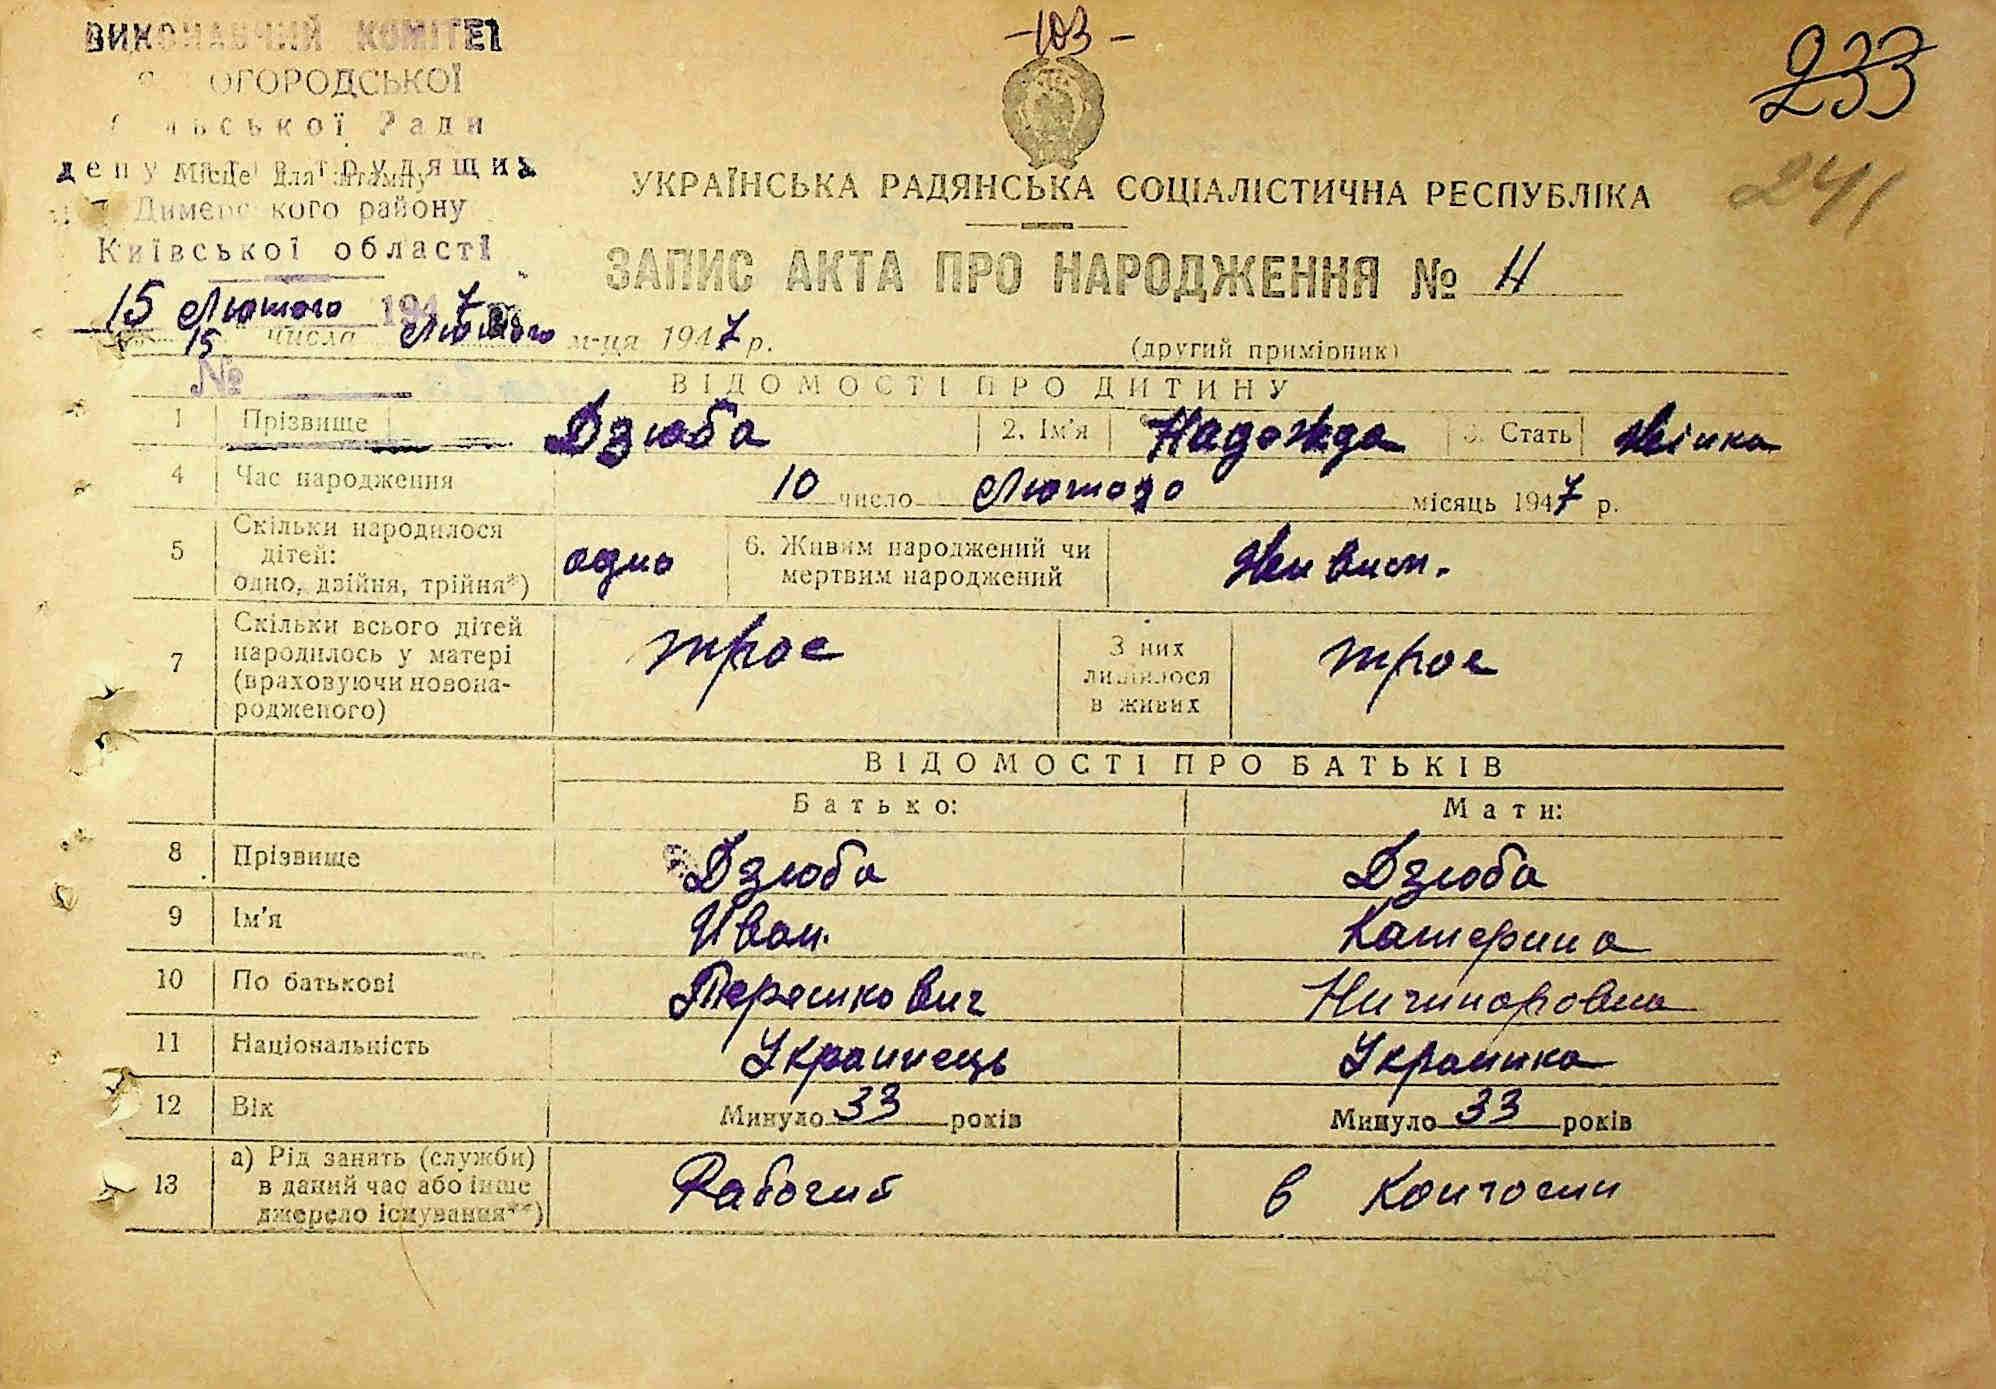 -103-
233
241
ВИКОНАВЧИЙ КОМІТЕТ
ОГОРОДСЬКОЇ
сільської Ради
депутатів трудящих
Місце для штампу
Димерського району
Київської області
15 Лютого 1947
№
УКРАЇНСЬКА РАДЯНСЬКА СОЦІАЛІСТИЧНА РЕСПУБЛІКА
ЗАПИС АКТА ПРО НАРОДЖЕННЯ № 11
15 числа Лютого м-ця 1947 р.
(другий примірник)
ВІДОМОСТІ ПРО ДИТИНУ
1 Прізвище Дзюба 2. Ім'я Надежда 3. Стать Жінка
4 Час народження 10 число Лютого місяць 1947 р.
5 Скільки народилося дітей: одно, двійня, трійня*) одно 6. Живим народжений чи мертвим народжений
7 Скільки всього дітей народилось у матері (враховуючи новонародженого) трое З них лишилося в живих трое
ВІДОМОСТІ ПРО БАТЬКІВ
Батько: Мати:
8 Прізвище Дзюба Дзюба
9 Ім'я Иван. Катерина
10 По батькові Терешкович Ничипоровна
11 Національність Украинець Украинка
12 Вік Минуло 33 років Минуло 33 років
13 а) Рід занять (служби) в даний час або інше джерело існування**) Рабочий в